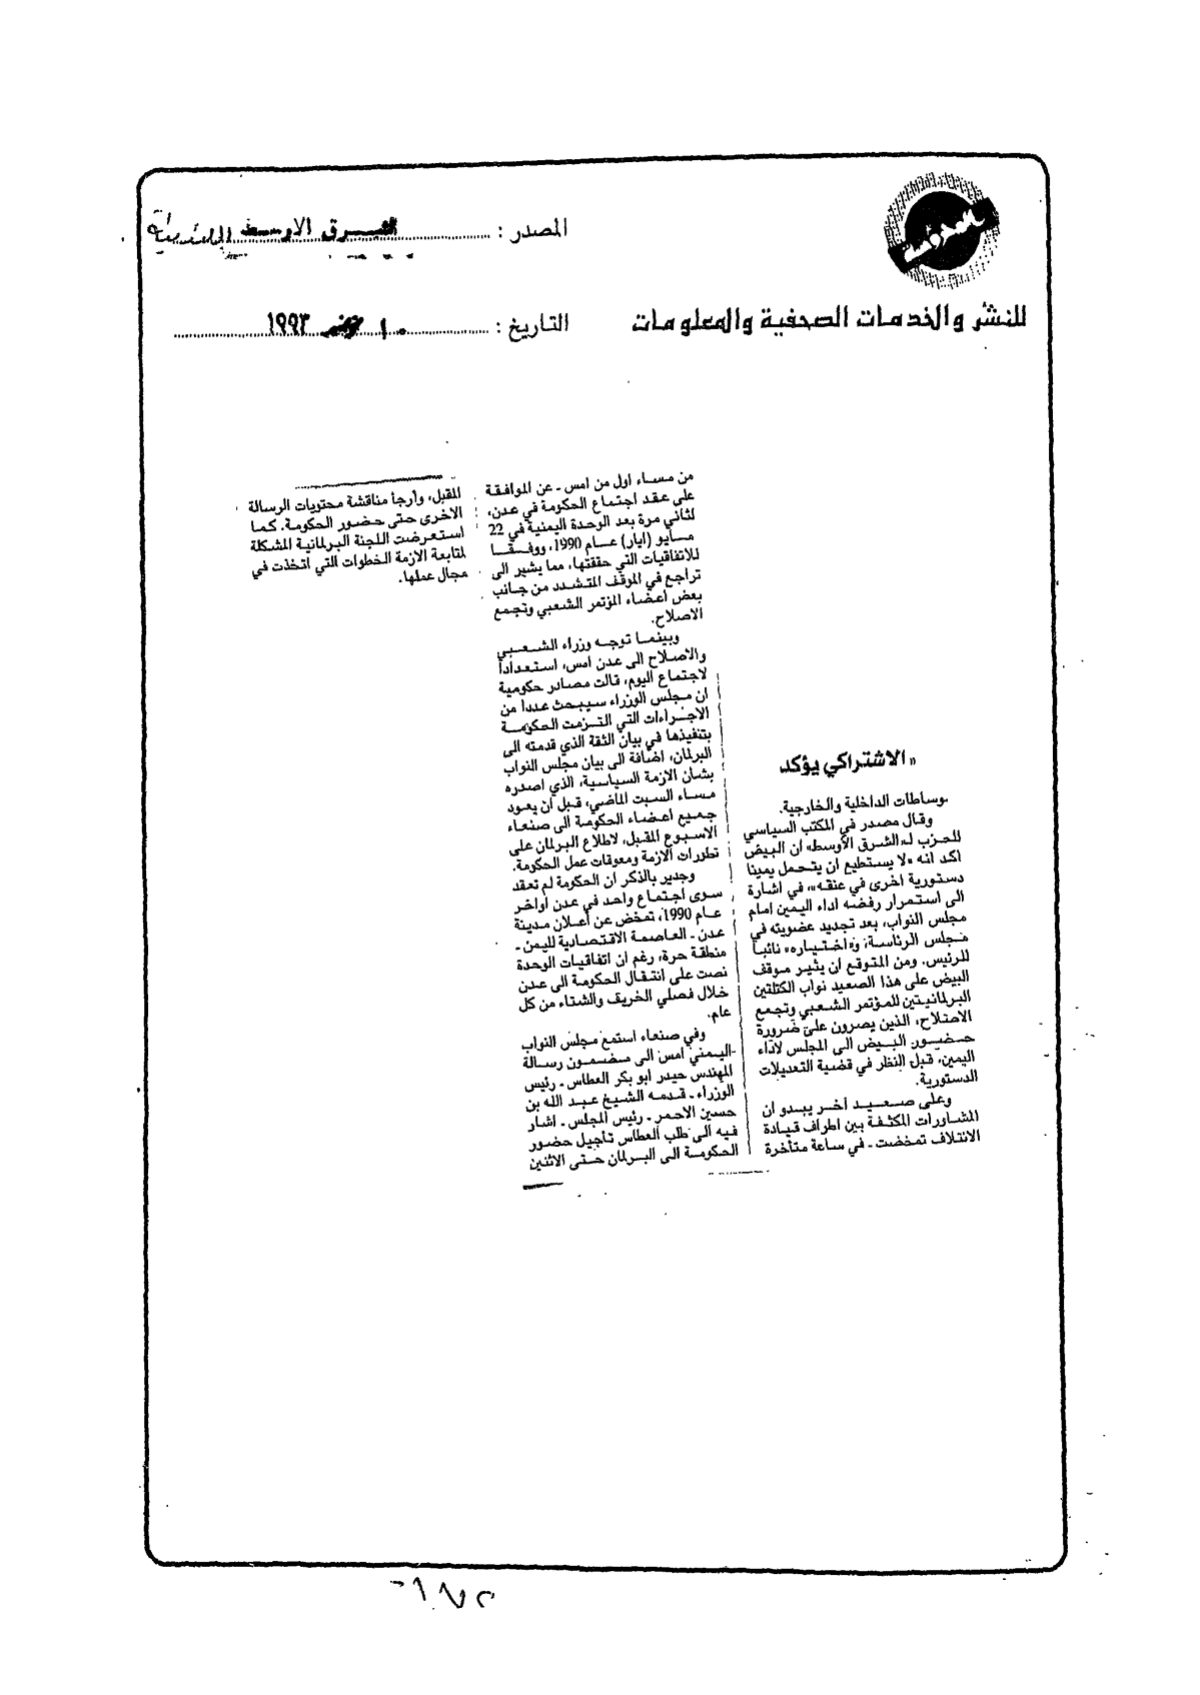 المصدر : الشرق الاوسط اللندنية
للنشر والخدمات الصحفية والمعلومات
التاريخ : ١٠ نوفمبر ١٩٩٣
« الاشتراكي يؤكد
بوساطات الداخلية والخارجية.
وقال مصدر في المكتب السياسي
للحزب لـ«الشرق الأوسط» ان البيض
اكد انه «لا يستطيع ان يتحمل يمينا
دستورية اخرى في عنقه»، في اشارة
الى استمرار رفضه اداء اليمين امام
مجلس النواب، بعد تجديد عضويته في
مجلس الرئاسة، و«اختياره» نائبا
للرئيس. ومن المتوقع ان يثير موقف
البيض على هذا الصعيد نواب الكتلتين
البرلمانيتين للمؤتمر الشعبي وتجمع
الاصلاح، الذين يصرون على ضرورة
حضور البيض الى المجلس لاداء
اليمين، قبل النظر في قضية التعديلات
الدستورية.
وعلى صعيد آخر يبدو ان
المشاورات المكثفة بين اطراف قيادة
الائتلاف تمخضت - في ساعة متأخرة
من مساء اول من امس - عن الموافقة
على عقد اجتماع الحكومة في عدن،
لثاني مرة بعد الوحدة اليمنية في 22
مايو (ايار) عام 1990، ووفقا
للاتفاقيات التي حققتها، مما يشير الى
تراجع في الموقف المتشدد من جانب
بعض اعضاء المؤتمر الشعبي وتجمع
الاصلاح.
وبينما توجه وزراء الشعبي
والاصلاح الى عدن امس، استعدادا
لاجتماع اليوم، قالت مصادر حكومية
ان مجلس الوزراء سيبحث عددا من
الاجراءات التي التزمت الحكومة
بتنفيذها في بيان الثقة الذي قدمته الى
البرلمان، اضافة الى بيان مجلس النواب
بشان الازمة السياسية، الذي اصدره
مساء السبت الماضي، قبل ان يعود
جميع اعضاء الحكومة الى صنعاء
الاسبوع المقبل، لاطلاع البرلمان على
تطورات الازمة ومعوقات عمل الحكومة.
وجدير بالذكر ان الحكومة لم تعقد
سوى اجتماع واحد في عدن أواخر
عام 1990، تمخض عن اعلان مدينة
عدن - العاصمة الاقتصادية لليمن -
منطقة حرة، رغم ان اتفاقيات الوحدة
نصت على انتقال الحكومة الى عدن
خلال فصلي الخريف والشتاء من كل
عام.
وفي صنعاء استمع مجلس النواب
اليمني امس الى مضمون رسالة
المهندس حيدر ابو بكر العطاس - رئيس
الوزراء - قدمه الشيخ عبد الله بن
حسين الاحمر - رئيس المجلس - اشار
فيه الى طلب العطاس تأجيل حضور
الحكومة الى البرلمان حتى الاثنين
المقبل، وارجا مناقشة محتويات الرسالة
الاخرى حتى حضور الحكومة. كما
استعرضت اللجنة البرلمانية المشكلة
لمتابعة الازمة الخطوات التي اتخذت في
مجال عملها.